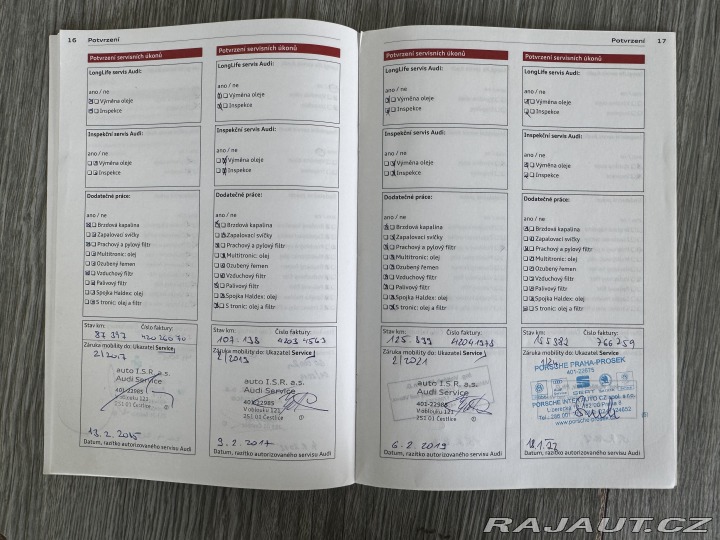 16 Potvrzení
Potvrzení servisních úkonů
LongLife servis Audi:
ano / ne
Výměna oleje
Inspekce
Inspekční servis Audi:
ano / ne
Výměna oleje
Inspekce
Dodatečné práce:
ano / ne
Brzdová kapalina
Zapalovací svíčky
Prachový a pylový filtr
Multitronic: olej
Ozubený řemen
Vzduchový filtr
Palivový filtr
Spojka Haldex: olej
S tronic: olej a filtr
Stav km: Číslo faktury:
87 397 420 260 70
Záruka mobility do: Ukazatel Service
2/2017
auto I.S.R. a.s.
Audi Service
401-22985
V oblouku 121
251 01 Čestlice
13. 2. 2015
Datum, razítko autorizovaného servisu Audi
Potvrzení servisních úkonů
LongLife servis Audi:
ano / ne
Výměna oleje
Inspekce
Inspekční servis Audi:
ano / ne
Výměna oleje
Inspekce
Dodatečné práce:
ano / ne
Brzdová kapalina
Zapalovací svíčky
Prachový a pylový filtr
Multitronic: olej
Ozubený řemen
Vzduchový filtr
Palivový filtr
Spojka Haldex: olej
S tronic: olej a filtr
Stav km: Číslo faktury:
107 138 4203 4563
Záruka mobility do: Ukazatel Service
2/2019
auto I.S.R. a.s.
Audi Service
401-22985
V oblouku 121
251 01 Čestlice
9. 2. 2017
Datum, razítko autorizovaného servisu Audi
Potvrzení 17
Potvrzení servisních úkonů
LongLife servis Audi:
ano / ne
Výměna oleje
Inspekce
Inspekční servis Audi:
ano / ne
Výměna oleje
Inspekce
Dodatečné práce:
ano / ne
Brzdová kapalina
Zapalovací svíčky
Prachový a pylový filtr
Multitronic: olej
Ozubený řemen
Vzduchový filtr
Palivový filtr
Spojka Haldex: olej
S tronic: olej a filtr
Stav km: Číslo faktury:
125 899
Záruka mobility do: Ukazatel Service
2/2021
auto I.S.R. a.s.
Audi Service
401-22985
V oblouku 121
251 01 Čestlice
6. 2. 2019
Datum, razítko autorizovaného servisu Audi
Potvrzení servisních úkonů
LongLife servis Audi:
ano / ne
Výměna oleje
Inspekce
Inspekční servis Audi:
ano / ne
Výměna oleje
Inspekce
Dodatečné práce:
ano / ne
Brzdová kapalina
Zapalovací svíčky
Prachový a pylový filtr
Multitronic: olej
Ozubený řemen
Vzduchový filtr
Palivový filtr
Spojka Haldex: olej
S tronic: olej a filtr
Stav km: Číslo faktury:
155 382 766 259
Záruka mobility do: Ukazatel Service
PORSCHE PRAHA-PROSEK
401-22675
SEAT
PORSCHE INTER AUTO CZ spol. s r.o.
Datum, razítko autorizovaného servisu Audi
RAJAUT.CZ